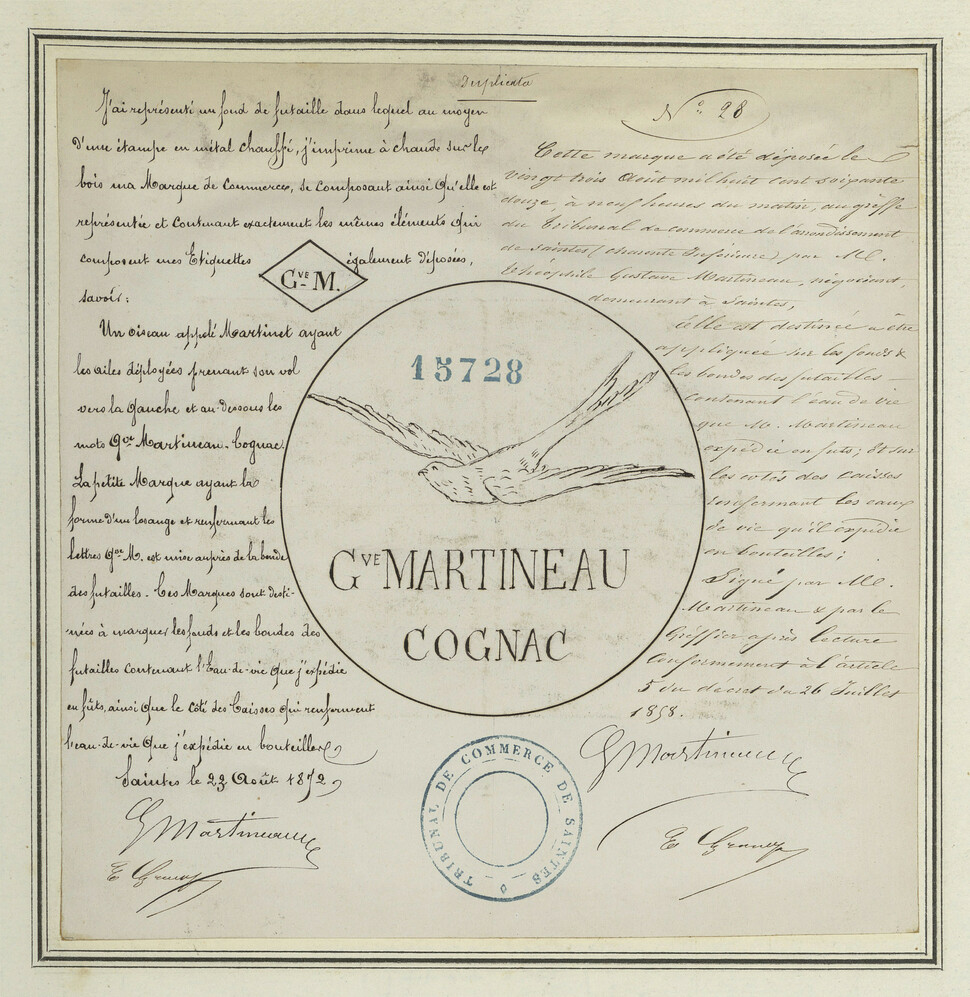 Duplicata
J'ai représenté un fond de futaille dans lequel au moyen
d'une étampe en métal chauffé, j'imprime à chaude sur le
bois ma Marque de Commerce, se composant ainsi qu'elle est
représentée et contenant exactement les mêmes éléments qui
composent mes Etiquettes
Gve M.
également déposées,
savoir:
Un oiseau appelé Martinet ayant
les ailes déployées prenant son vol
vers la gauche et au-dessous les
mots Gve Martineau-Cognac.
La petite Marque ayant la
forme d'un losange et renfermant les
lettres Gve M. est mise auprès de la bonde
des futailles. Ces Marques sont desti-
nées à marquer les fonds et les bondes des
futailles contenant l'Eau-de-vie que j'expédie
en fûts, ainsi que le côté des Caisses qui renferment
l'eau-de-vie que j'expédie en bouteilles
Saintes le 23 Août 1872
G Martineau
15728
Gve MARTINEAU
COGNAC
TRIBUNAL DE COMMERCE DE SAINTES
No 28
Cette marque a été déposée le
vingt trois Août mil huit cent soixante
douze, à neuf heures du matin, au greffe
du Tribunal de commerce de l'arrondissement
de Saintes (charente Inférieure) par M.
Théophile Gustave Martineau, négociant,
demeurant à Saintes,
Elle est destinée a être
appliquée sur les fonds &
les bondes des futailles
contenant l'eau de vie
que M. Martineau
expédie en futs; Et sur
les cotés des caisses
renfermant les eaux
de vie qu'il expédie
en bouteilles;
Signé par M.
Martineau & par le
Greffier après lecture
conformement à l'article
5 du décret du 26 Juillet
1858.
G Martineau